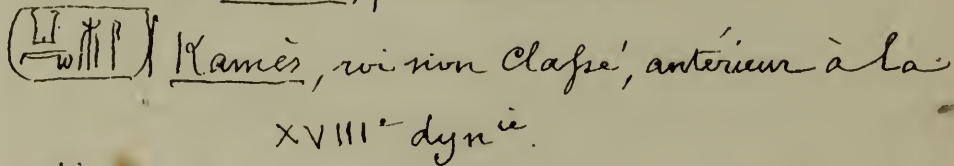 Kamès, roi non Classé, antérieur à la
XVIIIe dynie.